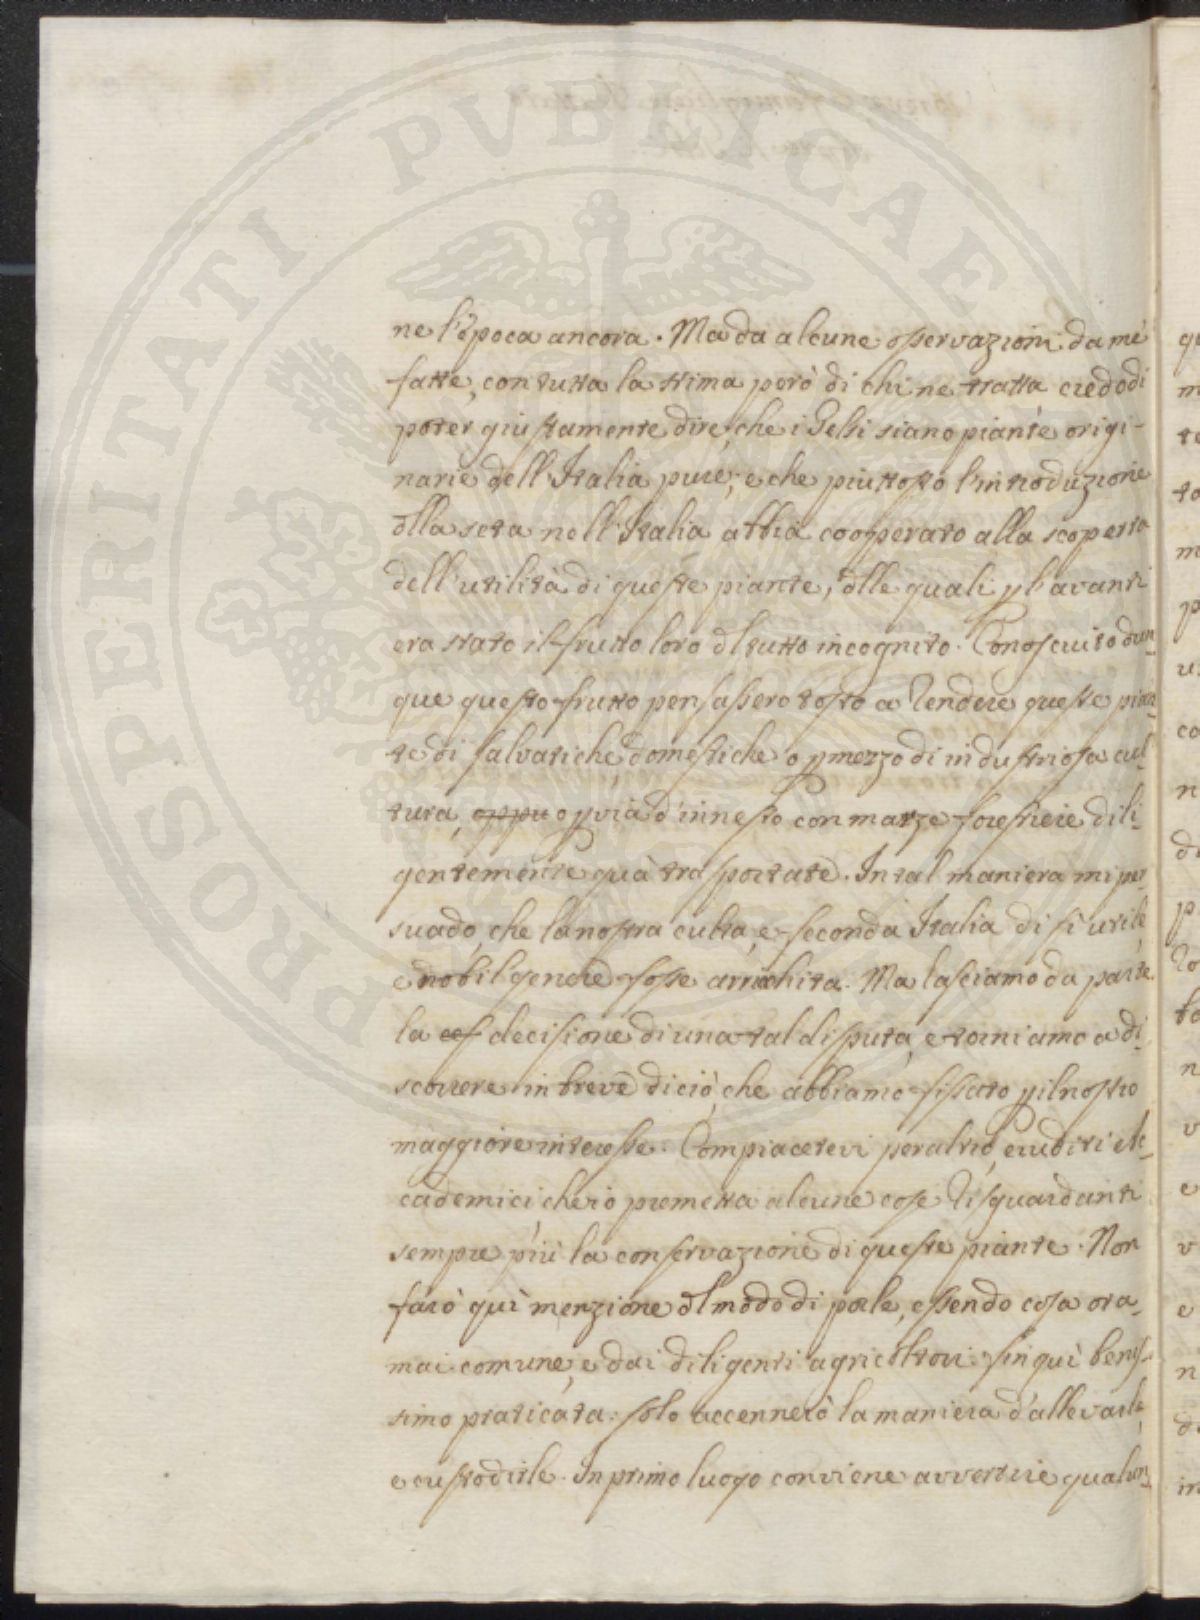 PROSPERITATI PUBLICAE
ne l'Epoca ancora. Ma da alcune osservazioni da mè
fatte, con tutta la stima però di chi ne tratta credo di
poter giustamente dire, che i Gelsi siano piante origi-
narie dell'Italia pure, e che piuttosto l'introduzione
dlla seta nell'Italia abbia cooperato alla scoperta
dell'utilità di queste piante, dlle quali p l'avanti
era stato il frutto loro dl tutto incognito. Conosciuto dun-
que questo frutto pensassero tosto a rendere queste pian-
te di salvatiche, domestiche o p mezzo di industriosa cul-
tura, oppu o p via d'innesto con marze forestiere dili-
gentemente quà trasportate. In tal maniera mi per-
suado, che la nostra culta, e feconda Italia di sì utile,
e nobil genere fosse arrichita. Ma lasciamo da parte
la decisione di una tal disputa, e torniamo a di-
scorrere in breve di ciò, che abbiamo fissato p il nostro
maggiore interesse. Compiacetevi peraltro, eruditi Ac-
cademici che io premetta alcune cose risguardanti
sempre più la conservazione di queste piante. Non
farò quì menzione dl modo di porle, essendo cosa ora-
mai comune, e dai diligenti agricoltori fin quì benis-
simo praticata: solo accennerò la maniera d'allevarle,
e custodirle. In primo luogo conviene avvertire qualun-